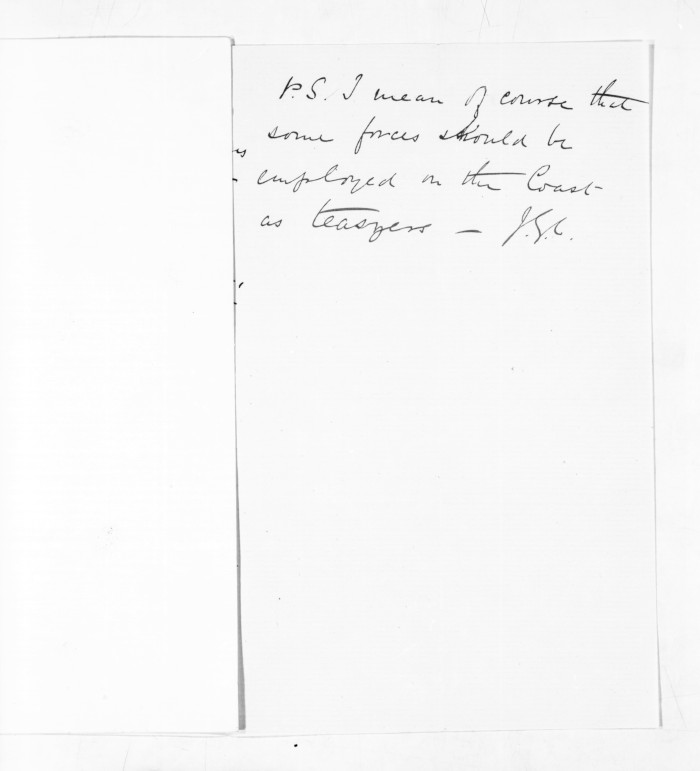 P.S. I mean of course that
some forces should be
employed on the Coast
as teazers — J.G.C.